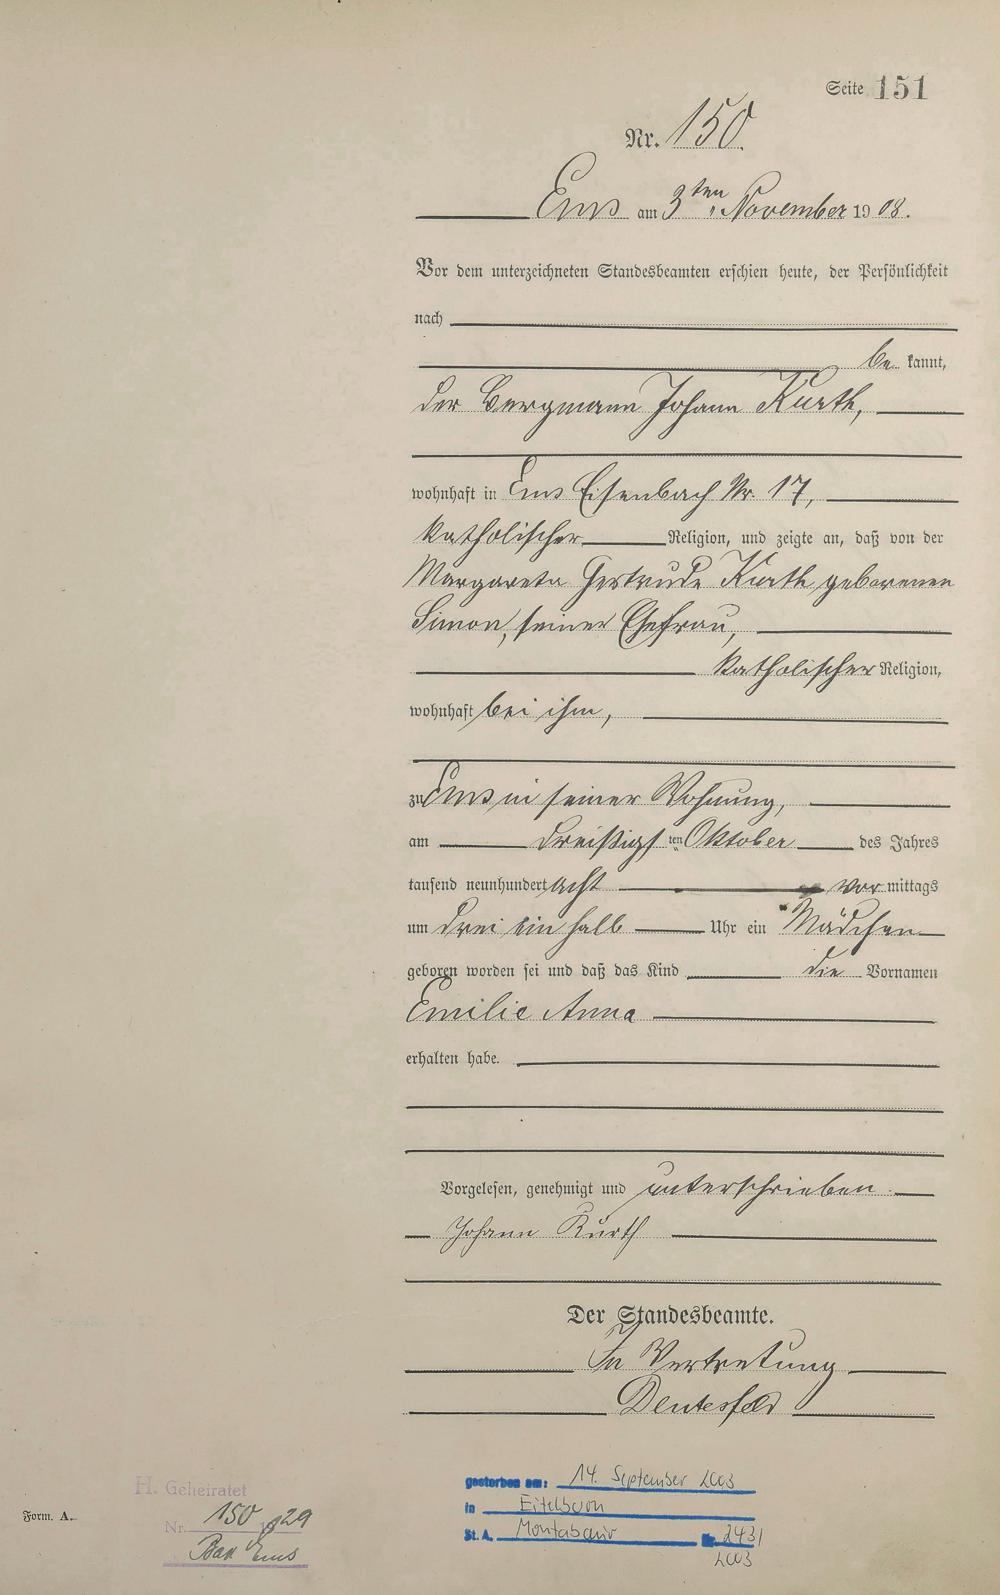 Seite 151
Nr. 150.
Ems am 3ten November 1908.
Vor dem unterzeichneten Standesbeamten erschien heute, der Persönlichkeit
nach
be kannt,
der Bergmann Johann Kurth,
wohnhaft in Ems Eisenbach Nr. 17,
katholischer Religion, und zeigte an, daß von der
Margareta Gertrude Kurth geborenen
Simon, seiner Ehefrau,
katholischer Religion,
wohnhaft bei ihm,
zu Ems in seiner Wohnung,
am dreißigsten Oktober des Jahres
tausend neunhundert acht vor mittags
um drei ein halb Uhr ein Mädchen
geboren worden sei und daß das Kind die Vornamen
Emilie Anna
erhalten habe.
Vorgelesen, genehmigt und unterschrieben
Johann Kurth
Der Standesbeamte.
In Vertretung
gestorben am: 14. September 2003
in Eitelborn
St. A. Montabaur Nr. 243/
2003
H. Geheiratet
Form. A.
Nr. 150 1929
Bad Ems